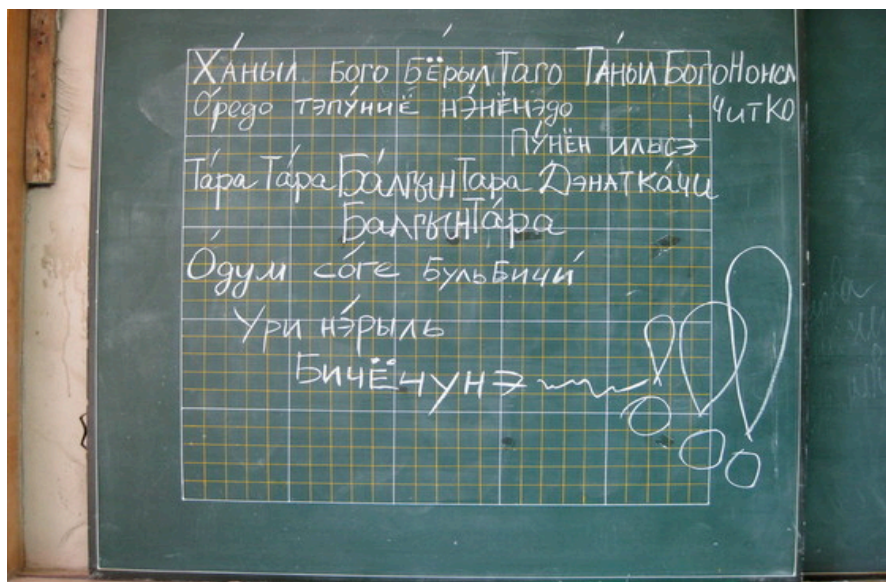 Ха́ныл бого Бёрыл Таго Та́ныл Бого Нонсл
О́редо тэпу́ниё нэ́нёнэдо Читко
Пу́нён илысэ́
Та́ра Та́ра Ба́лгын Тара Дэнатка́чи
Балгын Та́ра
О́дум со́ге Бульбичи́
Ури нэ́рыль
Бичёчунэ !!!